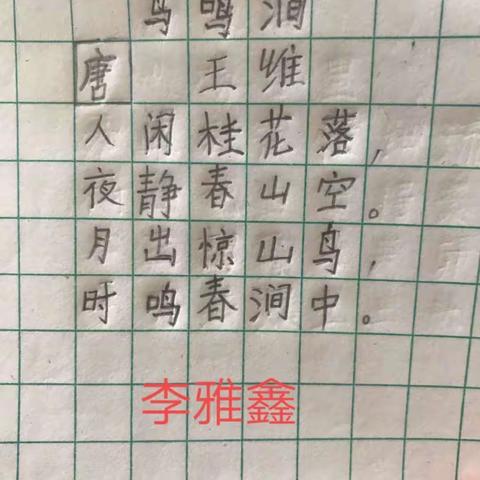 鸟鸣涧
唐 王维
人闲桂花落,
夜静春山空。
月出惊山鸟,
时鸣春涧中。
李雅鑫